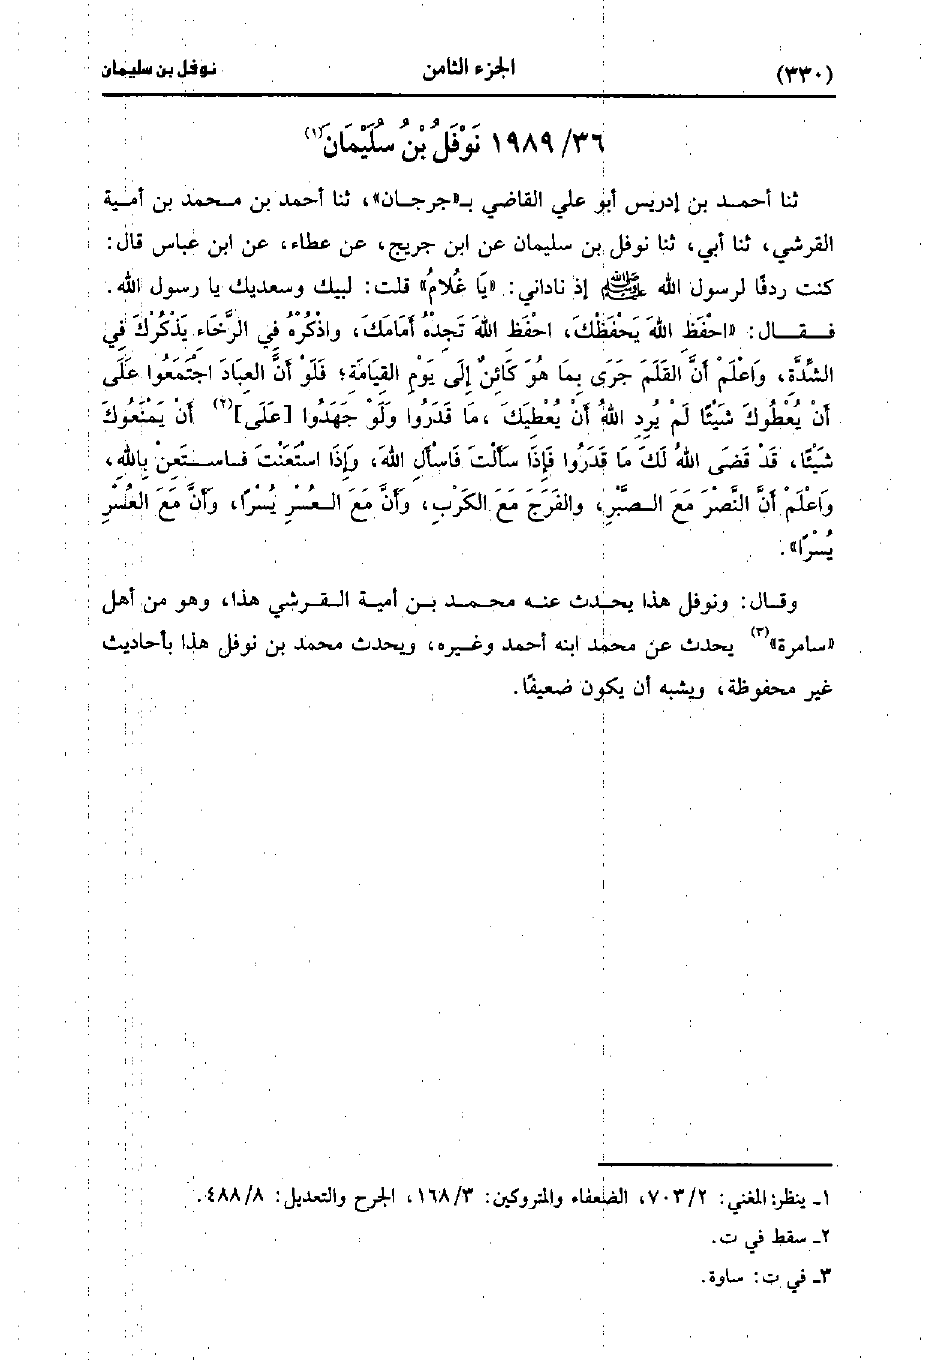 (٣٣٠) الجزء الثامن نوفل بن سليمان
١٩٨٩/٣٦ نَوْفَلُ بْنُ سُلَيْمَانَ(١)
ثنا أحمد بن إدريس أبو علي القاضي بـ«جرجان»، ثنا أحمد بن محمد بن أمية
القرشي، ثنا أبي، ثنا نوفل بن سليمان عن ابن جريج، عن عطاء، عن ابن عباس قال:
كنت ردفًا لرسول الله ﷺ إذ ناداني: «يَا غُلَامُ» قلت: لبيك وسعديك يا رسول الله.
فقال: «احْفَظِ اللهَ يَحْفَظْكَ، احْفَظِ اللهَ تَجِدْهُ أَمَامَكَ، واذْكُرْهُ فِي الرَّخَاءِ يَذْكُرْكَ فِي
الشِّدَّةِ، وَاعْلَمْ أَنَّ القَلَمَ جَرَى بِمَا هُوَ كَائِنٌ إِلَى يَوْمِ القِيَامَةِ؛ فَلَوْ أَنَّ العِبَادَ اجْتَمَعُوا عَلَى
أَنْ يُعْطُوكَ شَيْئًا لَمْ يُرِدِ اللهُ أَنْ يُعْطِيَكَ، مَا قَدَرُوا وَلَوْ جَهَدُوا [عَلَى](٢) أَنْ يَمْنَعُوكَ
شَيْئًا، قَدْ قَضَى اللهُ لَكَ مَا قَدَرُوا فَإِذَا سَأَلْتَ فَاسْأَلِ اللهَ، وَإِذَا اسْتَعَنْتَ فَاسْتَعِنْ بِاللهِ،
وَاعْلَمْ أَنَّ النَّصْرَ مَعَ الصَّبْرِ، والفَرَجَ مَعَ الكَرْبِ، وَأَنَّ مَعَ العُسْرِ يُسْرًا، وَأَنَّ مَعَ العُسْرِ
يُسْرًا».
وقال: ونوفل هذا يحدث عنه محمد بن أمية القرشي هذا، وهو من أهل
«سامرة»(٣) يحدث عن محمد ابنه أحمد وغيره، ويحدث محمد بن نوفل هذا بأحاديث
غير محفوظة، ويشبه أن يكون ضعيفًا.
١ـ ينظر: المغني: ٧٠٣/٢، الضعفاء والمتروكين: ١٦٨/٣، الجرح والتعديل: ٤٨٨/٨.
٢ـ سقط في ت.
٣ـ في ت: ساوة.